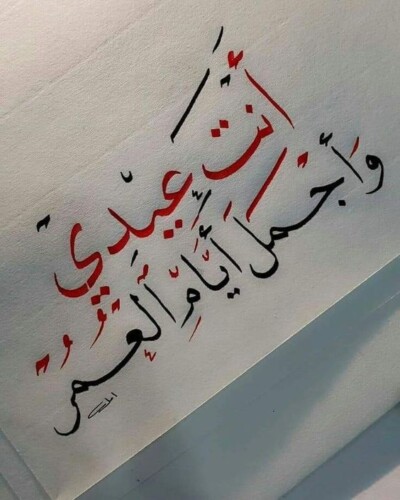 أنت عيدي
وأجمل أيّام العمر